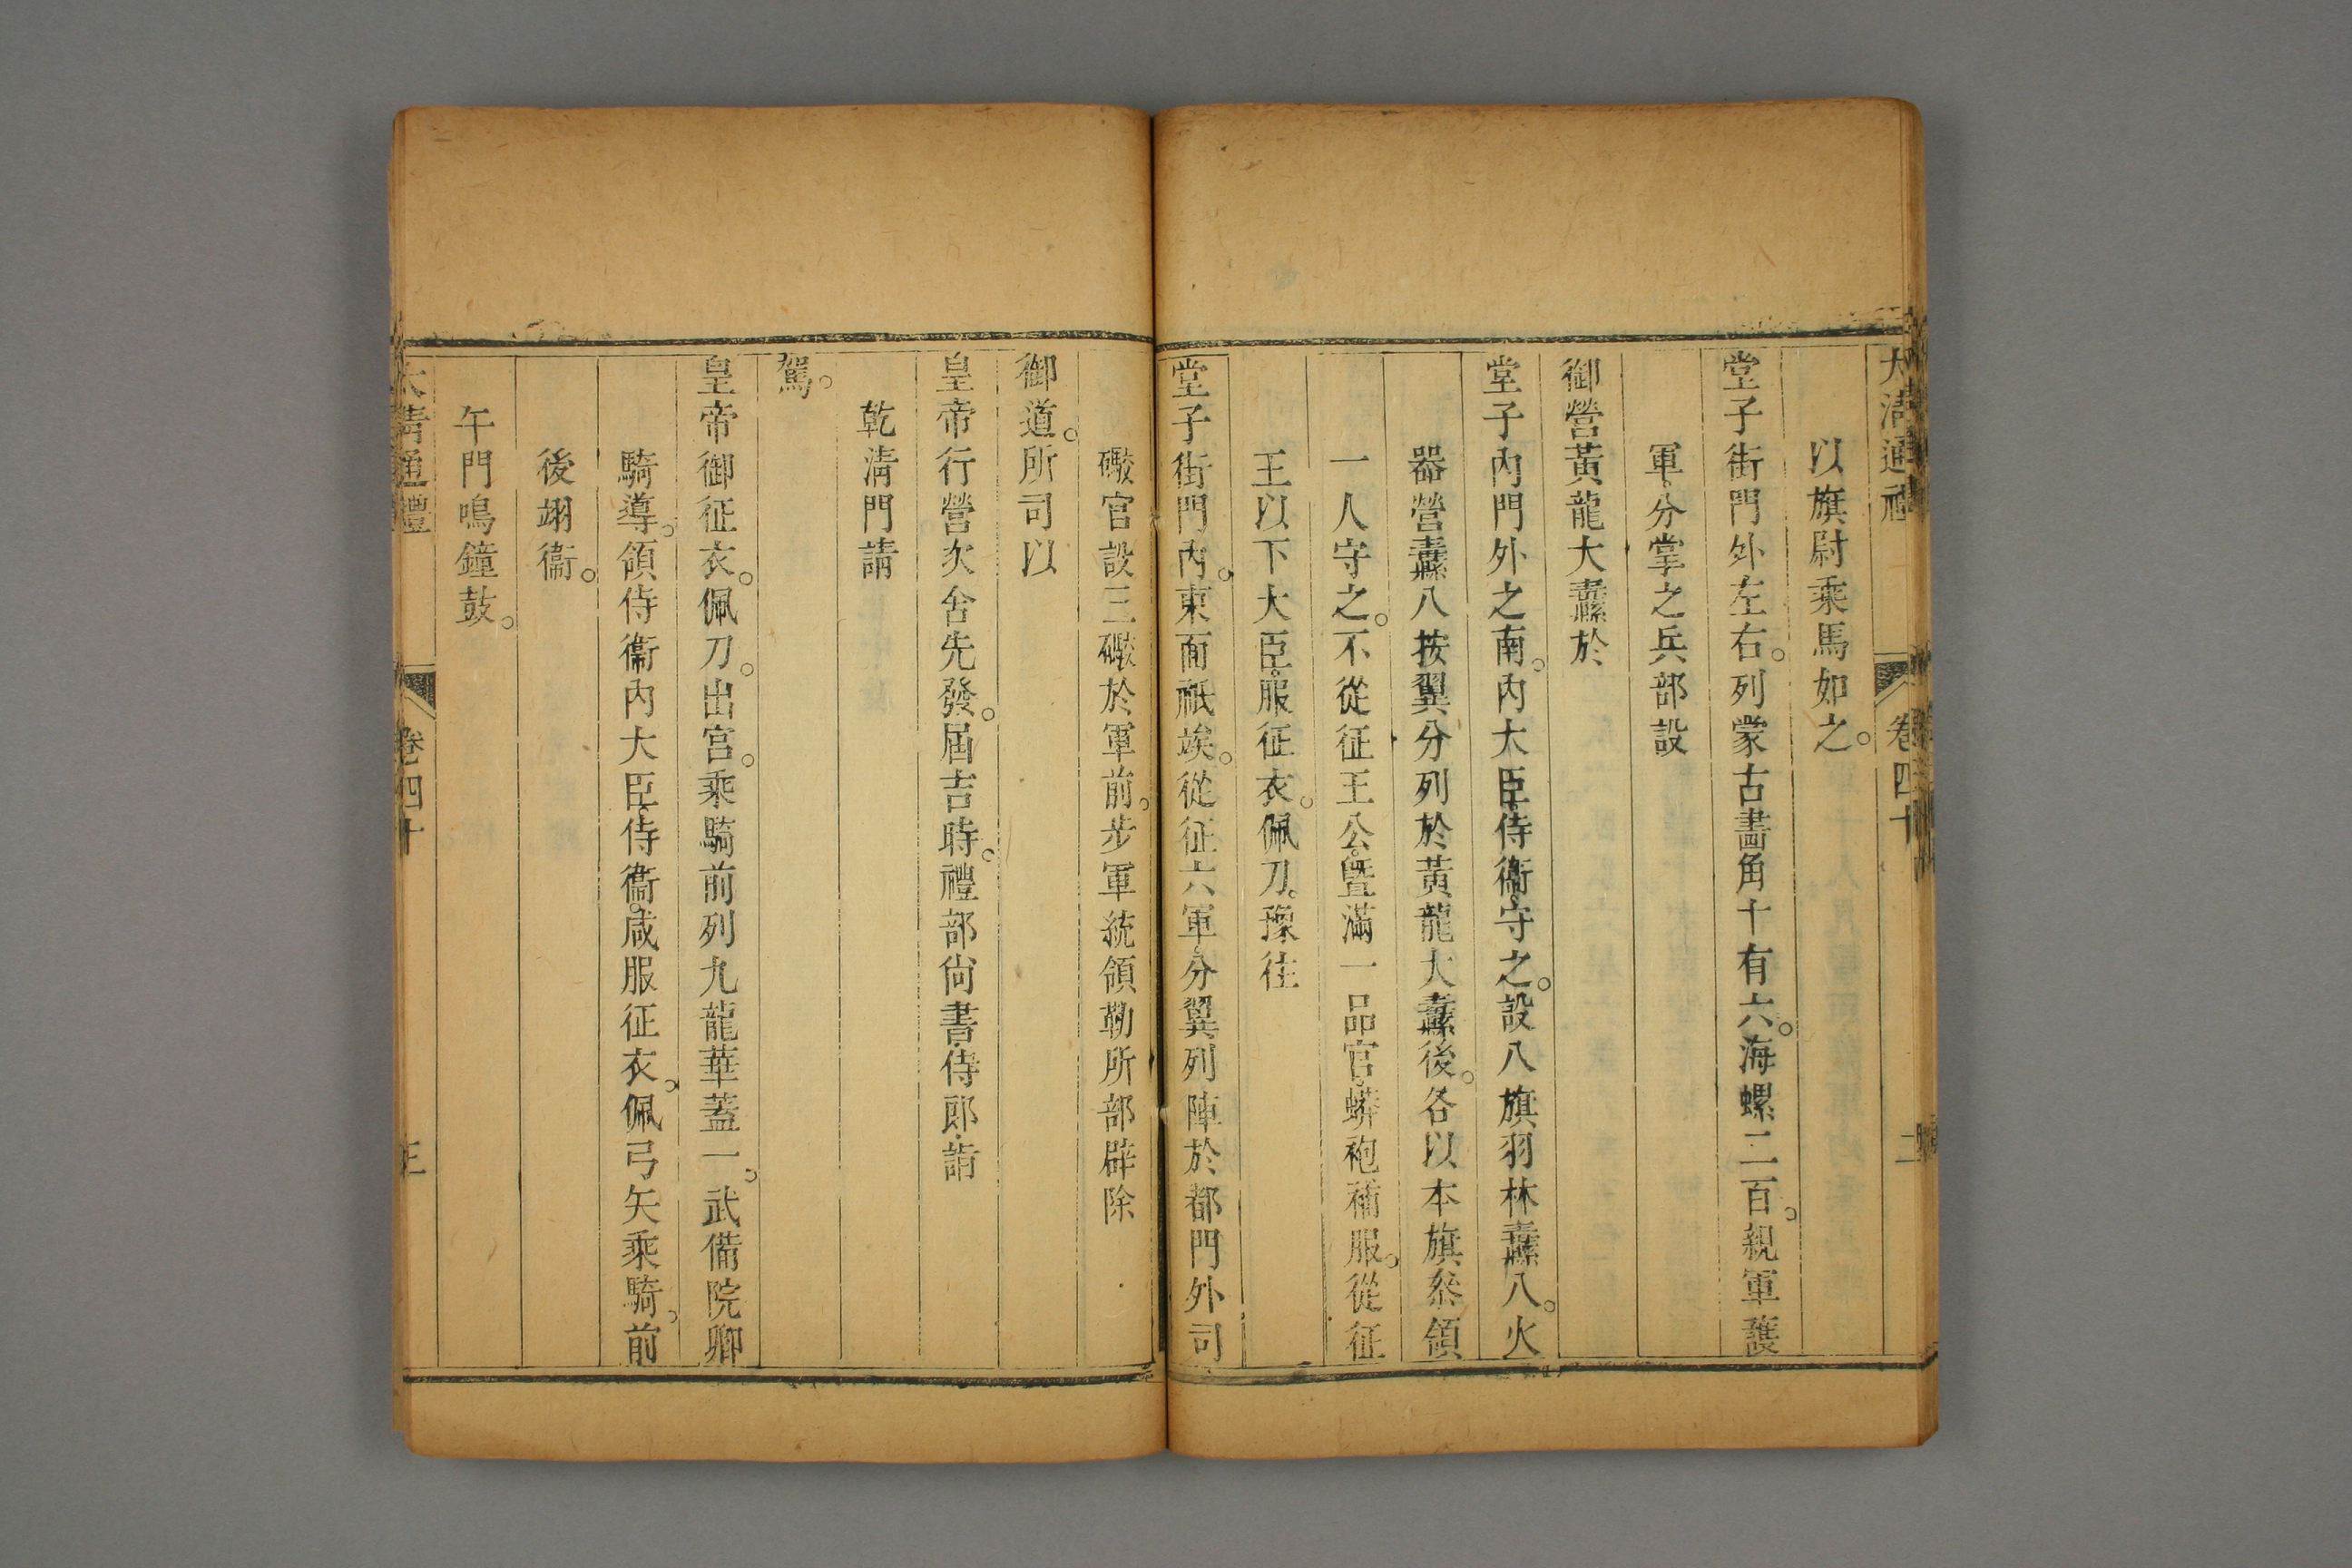 大清通禮 卷四十 二
以旗尉乘馬如之。
堂子街門外左右。列蒙古畫角十有六。海螺二百。親軍護
軍。分掌之。兵部設
御營黃龍大纛於
堂子內門外之南。內大臣侍衞守之。設八旗羽林纛八。火
器營纛八。按翼分列於黃龍大纛後。各以本旗叅領
一人守之。不從征王公。曁滿一品官。蟒袍補服。從征
王以下大臣。服征衣。佩刀。豫往
堂子街門內。東面祇竢。從征六軍。分翼列陣於都門外。司
礮官設三礮於軍前。步軍統領勒所部辟除
御道。所司以
皇帝行營次舍先發。屆吉時。禮部尙書侍郎。詣
乾淸門請
駕。
皇帝御征衣。佩刀。出宮。乘騎前列九龍華蓋一。武備院卿
騎導。領侍衞內大臣侍衞。咸服征衣。佩弓矢乘騎。前
後翊衞。
午門鳴鐘鼓。
大清通禮 卷四十 三